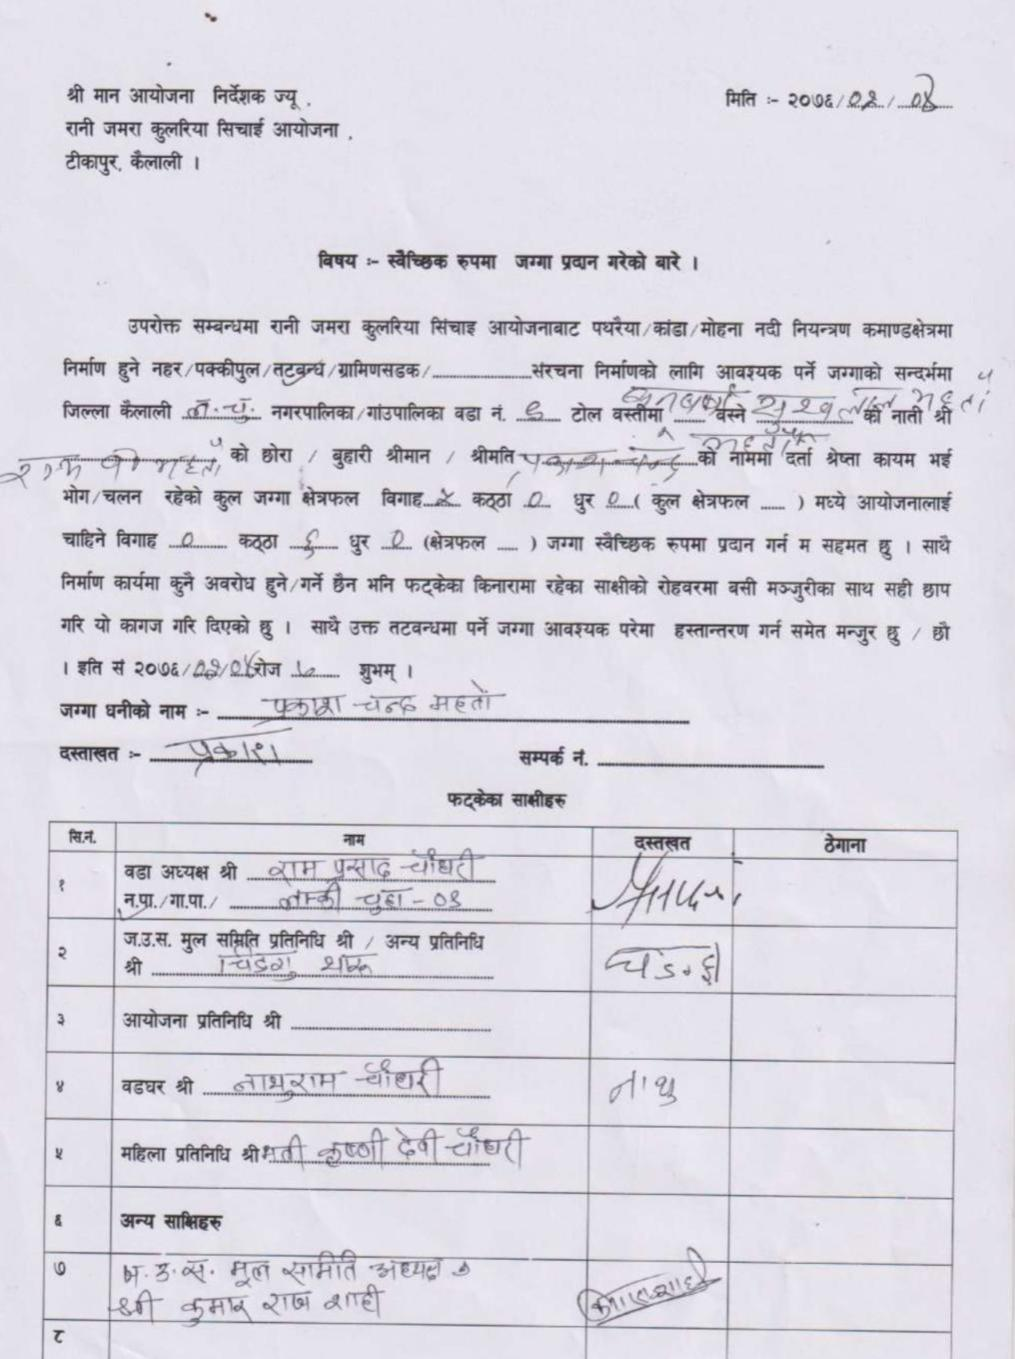 श्री मान आयोजना निर्देशक ज्यू ,
मिति :- २०७६/०२/०४
रानी जमरा कुलरिया सिचाई आयोजना ,
टीकापुर, कैलाली ।
विषय :- स्वैच्छिक रुपमा जग्गा प्रदान गरेको बारे ।
उपरोक्त सम्बन्धमा रानी जमरा कुलरिया सिंचाइ आयोजनाबाट पथरैया/कांडा/मोहना नदी नियन्त्रण कमाण्डक्षेत्रमा
निर्माण हुने नहर/पक्कीपुल/तटबन्ध/ग्रामिणसडक/.................संरचना निर्माणको लागि आवश्यक पर्ने जग्गाको सन्दर्भमा
जिल्ला कैलाली ल.चु. नगरपालिका/गांउपालिका वडा नं. टोल वस्तीमा ...... वस्ने को नाती श्री
को छोरा / बुहारी श्रीमान / श्रीमति प्रकाश चन्द्र महतो को नाममा दर्ता श्रेष्ता कायम भई
भोग/चलन रहेको कुल जग्गा क्षेत्रफल विगाह कठ्ठा 0 धुर 0 ( कुल क्षेत्रफल ...... ) मध्ये आयोजनालाई
चाहिने विगाह 0 कठ्ठा ६ धुर 0 (क्षेत्रफल ..... ) जग्गा स्वैच्छिक रुपमा प्रदान गर्न म सहमत छु । साथै
निर्माण कार्यमा कुनै अवरोध हुने/गर्ने छैन भनि फट्केका किनारामा रहेका साक्षीको रोहवरमा बसी मञ्जुरीका साथ सही छाप
गरि यो कागज गरि दिएको छु । साथै उक्त तटवन्धमा पर्ने जग्गा आवश्यक परेमा हस्तान्तरण गर्न समेत मन्जुर छु / छौ
। इति सं २०७६/०२/०४ रोज ७ शुभम् ।
जग्गा धनीको नाम :- प्रकाश चन्द्र महतो
दस्ताखत :- प्रकाश सम्पर्क नं. ..................
फट्केका साक्षीहरु
सि.नं. नाम दस्तखत ठेगाना
१ वडा अध्यक्ष श्री राम प्रसाद चौधरी
न.पा./गा.पा./ लम्की चुहा - ०१
२ ज.उ.स. मुल समिति प्रतिनिधि श्री / अन्य प्रतिनिधि
श्री
३ आयोजना प्रतिनिधि श्री ..................
४ वडघर श्री नाथुराम चौधरी नाथु
५ महिला प्रतिनिधि श्रीमती कृष्णी देवी चौधरी
६ अन्य साक्षिहरु
७ ज.उ.स. मूल समिति अध्यक्ष
श्री कुमार राज शाही
८